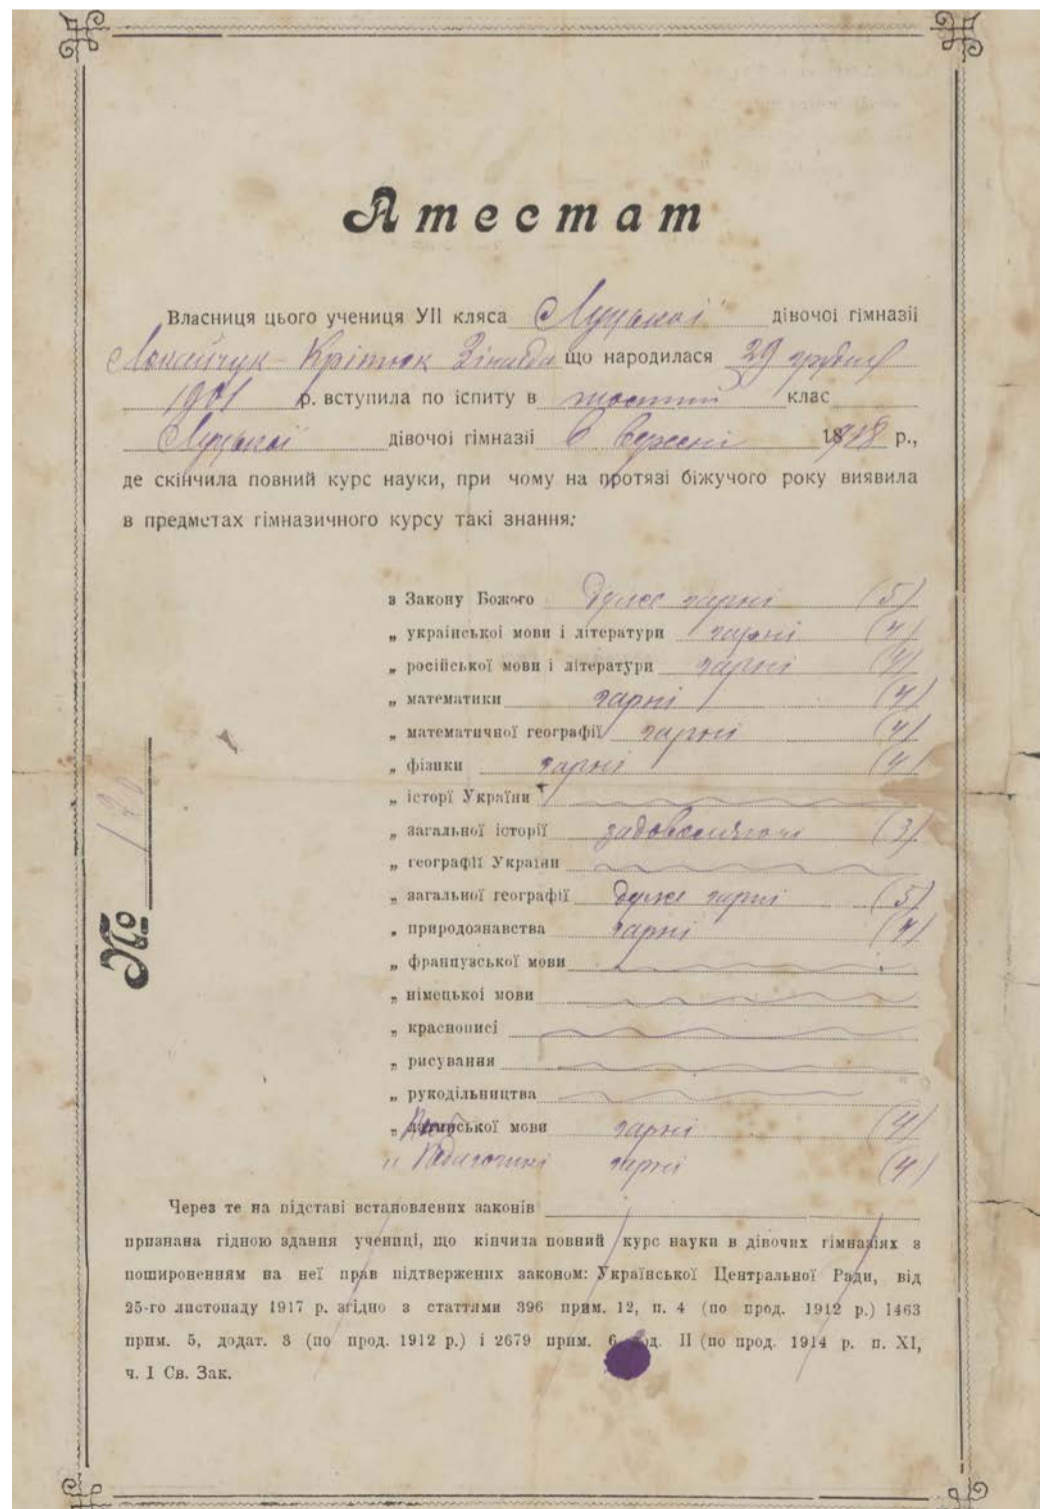 Атестат
Власниця цього учениця УІІ кляса Луцької дівочоі гімназіі
Крітюк Зінаїда що народилася 29 грудня
1901 р. вступила по іспиту в шостий клас
Луцької дівочоі гімназіі в вересні 1918 р.,
де скінчила повний курс науки, при чому на протязі біжучого року виявила
в предметах гімназичного курсу такі знання:
з Закону Божого дуже гарні (5)
„ української мови і літератури гарні (4)
„ російської мови і літератури гарні (4)
„ математики гарні (4)
„ математичної географії гарні (4)
„ фізики гарні (4)
„ історї України
„ загальної історії задовольняючі (3)
„ географії України
„ загальної географії дуже гарні (5)
„ природознавства гарні (4)
„ французської мови
„ німецькоі мови
„ краснописі
„ рисування
„ рукодільництва
„ мови гарні (4)
„ Педагогики гарні (4)
№ 120
Через те на підставі встановлених законів
признана гідною здання учениці, що кінчила повний курс науки в дівочих гімназіях з
пошироненням на неї прав підтвержених законом: Української Центральної Ради, від
25-го листопаду 1917 р. згідно з статтями 396 прим. 12, п. 4 (по прод. 1912 р.) 1463
прим. 5, додат. 3 (по прод. 1912 р.) і 2679 прим. 6 од. II (по прод. 1914 р. п. XI,
ч. I Св. Зак.